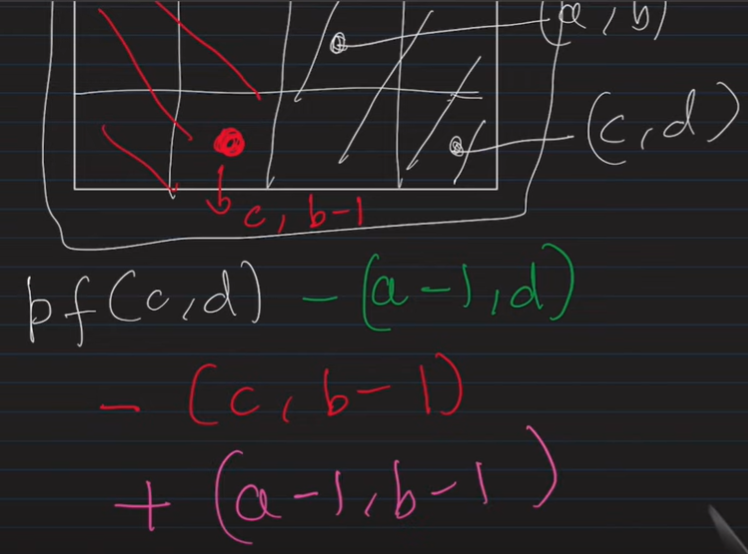 (a, b)
(c, d)
c, b-1
pf(c,d) - (a-1,d)
- (c, b-1)
+ (a-1, b-1)